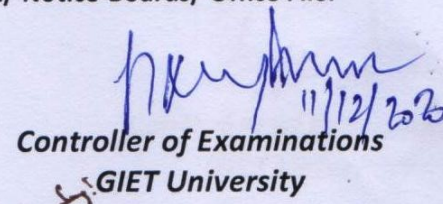 Notice Boards/ Office File.
11/12/2020
Controller of Examinations
GIET University